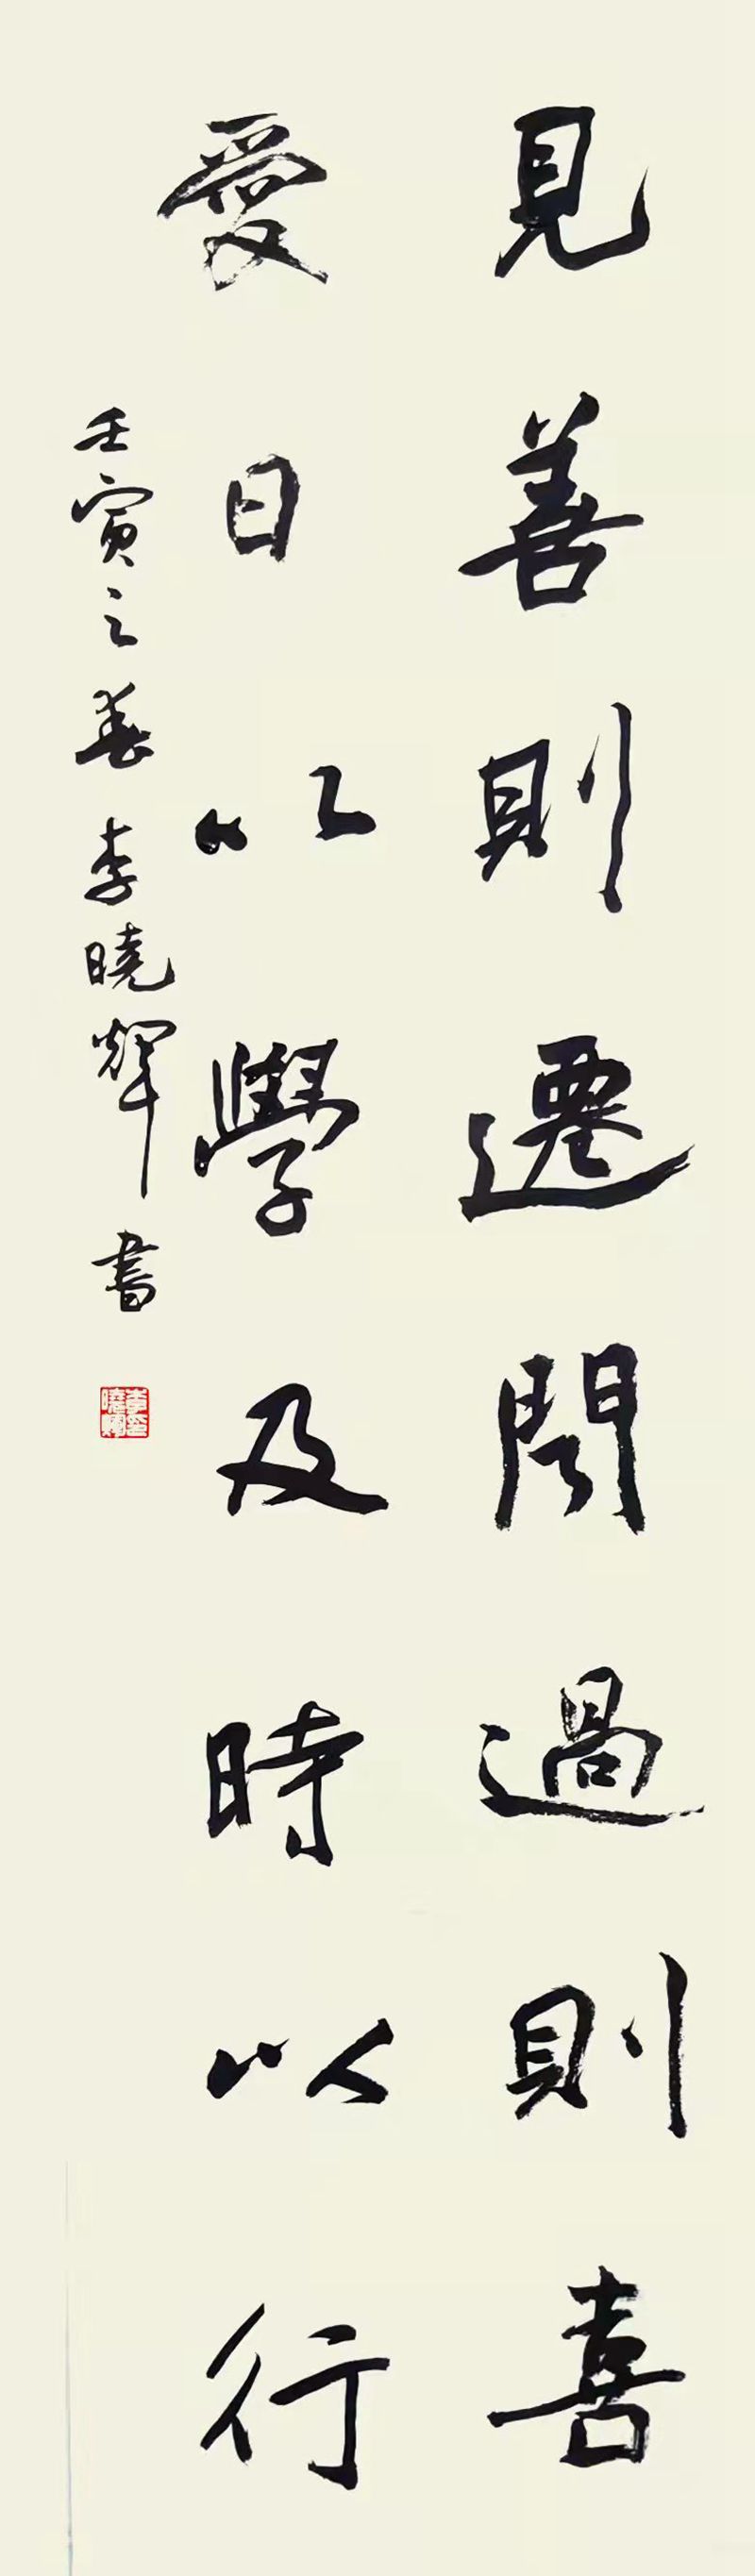 見善則遷聞過則喜
愛日以學及時以行
壬寅之春李曉輝書